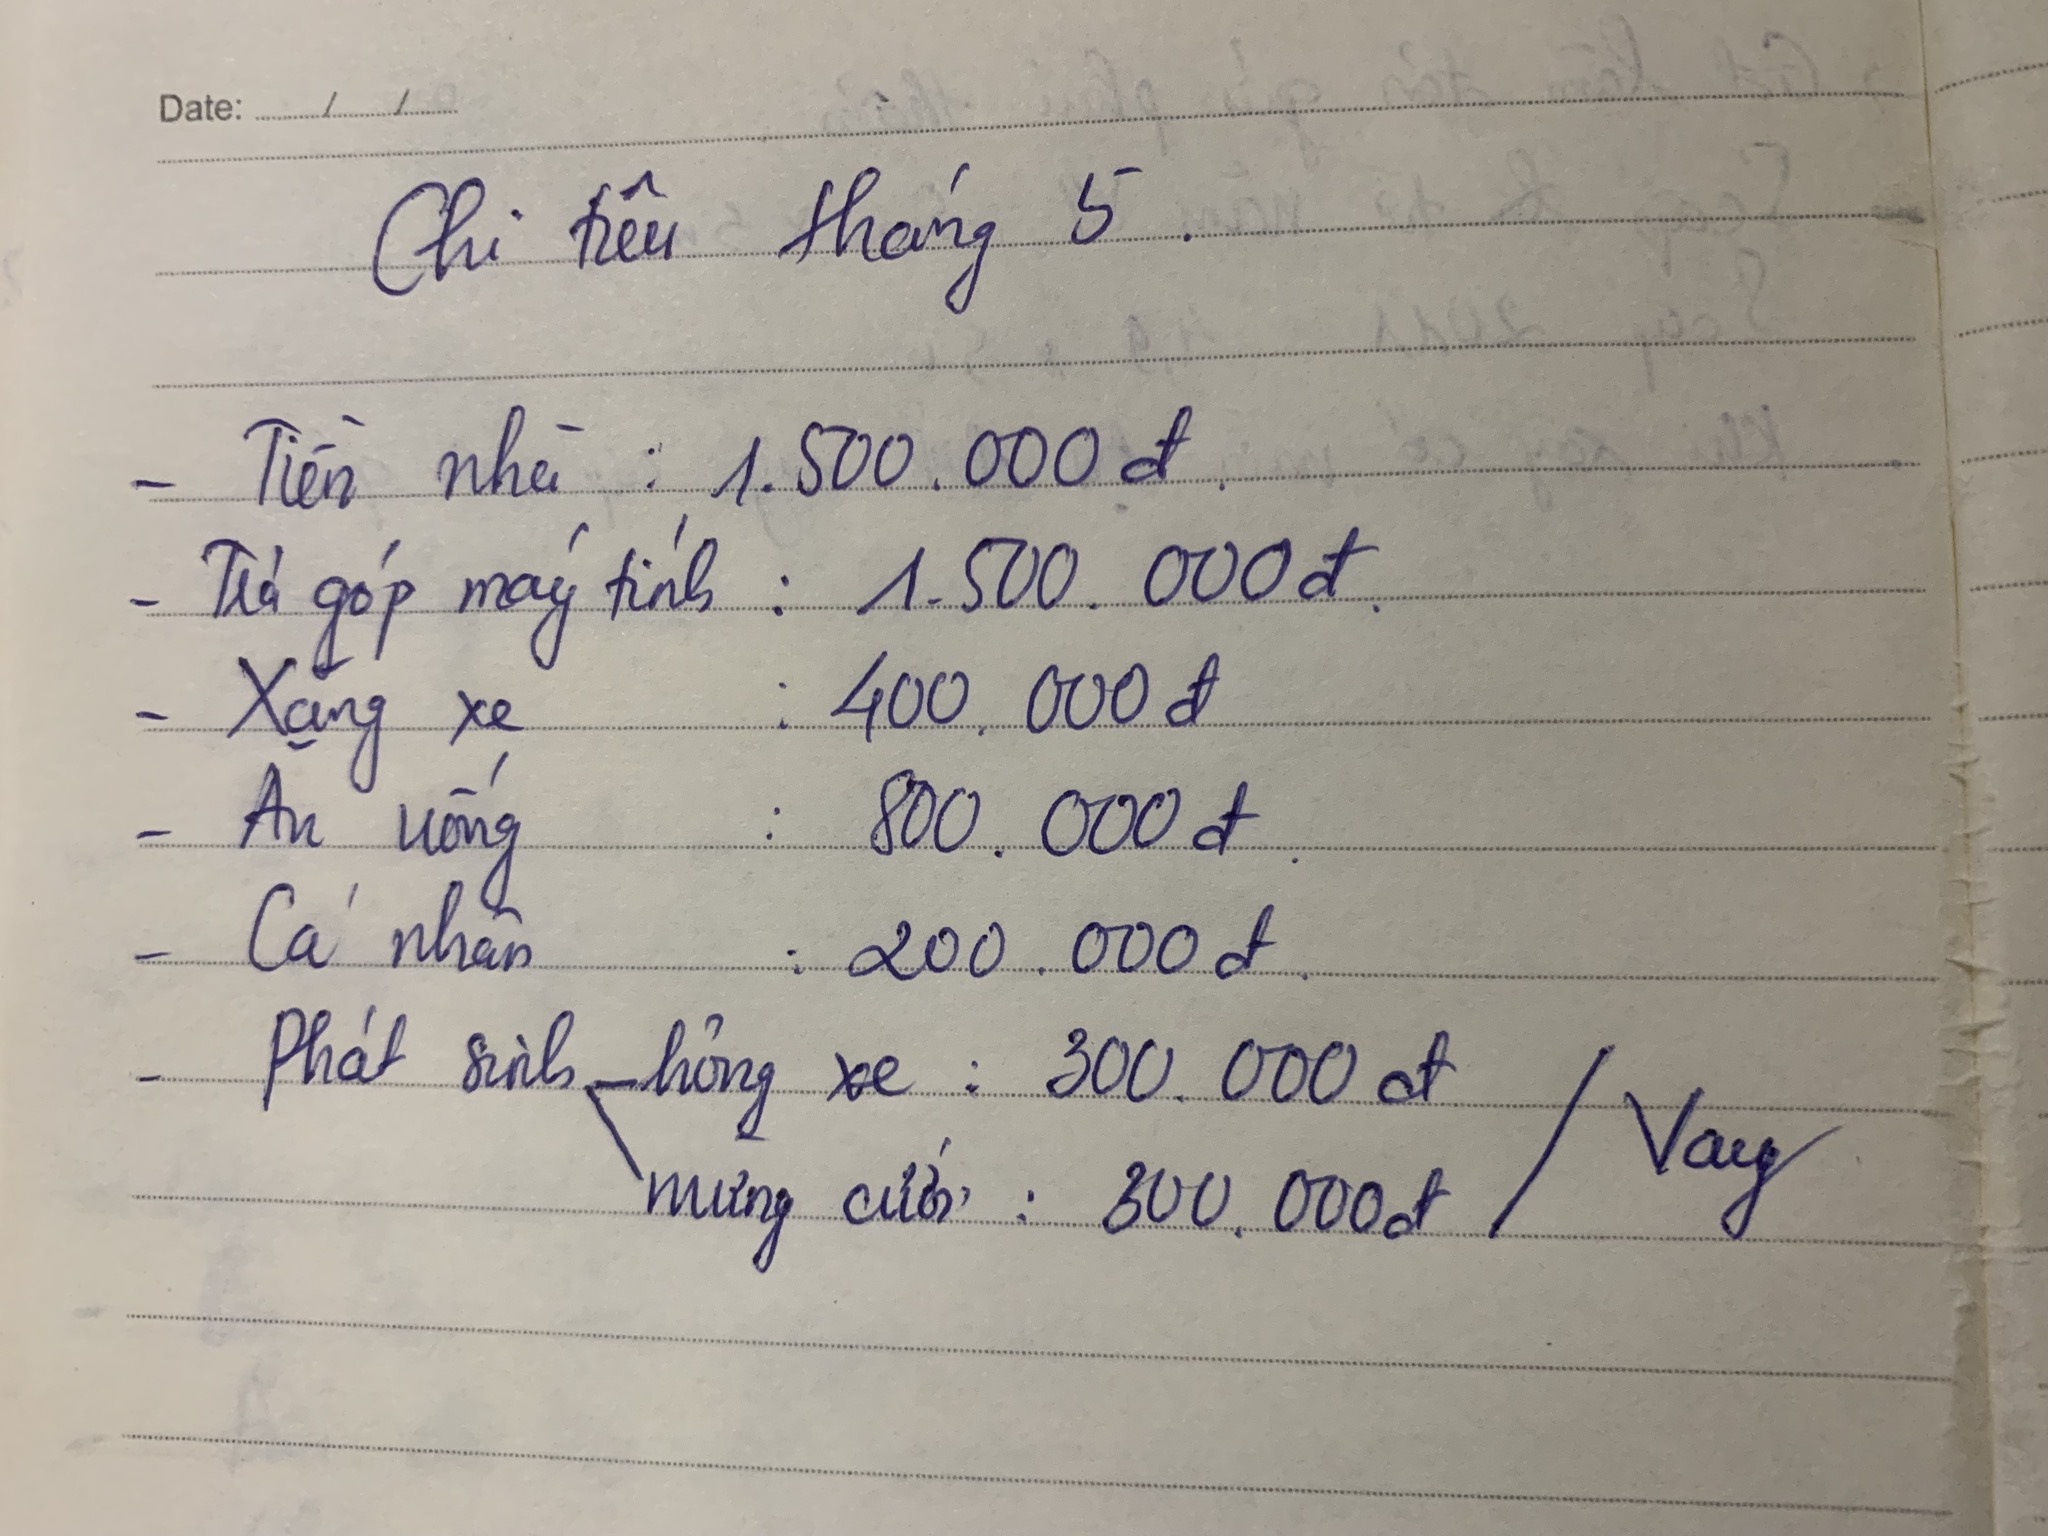 Date: / /
Chi tiêu tháng 5.
- Tiền nhà : 1.500.000đ.
- Trả góp máy tính : 1.500.000đ.
- Xăng xe : 400.000đ
- Ăn uống : 800.000đ.
- Cá nhân : 200.000đ.
- Phát sinh - hỏng xe : 300.000đ / Vay
mừng cưới : 300.000đ